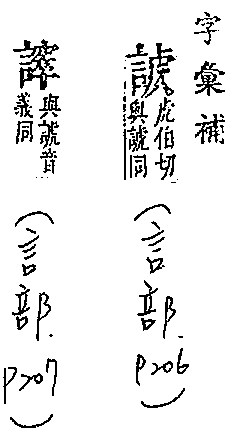 字彙補
虎伯切
與諕同
(言部.P206)
與諕音
義同
(言部.P207)